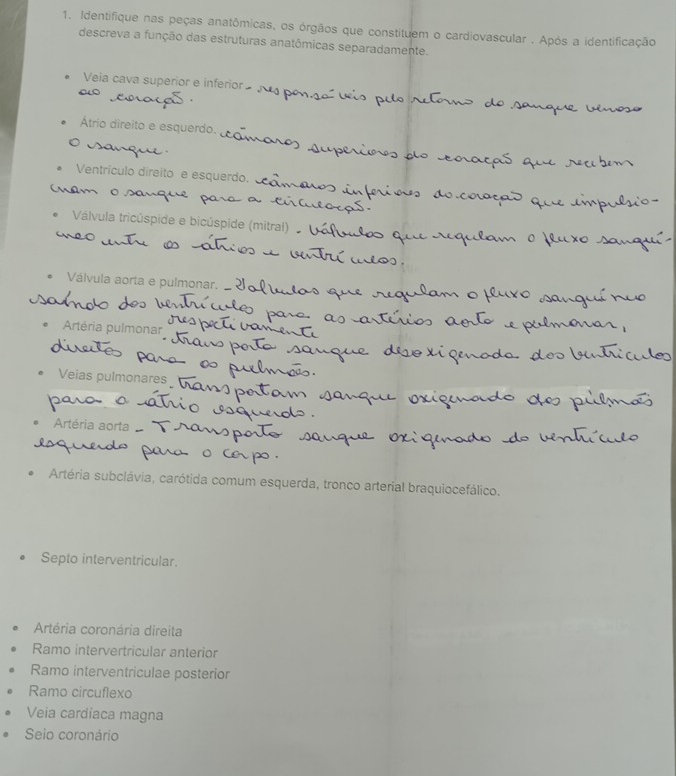 1. Identifique nas peças anatômicas, os órgãos que constituem o cardiovascular . Após a identificação
descreva a função das estruturas anatômicas separadamente.
• Veia cava superior e inferior - responsáveis pelo retorno do sangue venoso
ao coração.
• Átrio direito e esquerdo. câmaras superiores do coração que recebem
o sangue.
• Ventrículo direito e esquerdo. câmaras inferiores do coração que impulsio-
nam o sangue para a circulação.
• Válvula tricúspide e bicúspide (mitral) - Válvulas que regulam o fluxo sanguí-
neo entre os átrios e ventrículos.
• Válvula aorta e pulmonar. - Válvulas que regulam o fluxo sanguíneo
saindo dos ventrículos para as artérias aorta e pulmonar,
respectivamente
• Artéria pulmonar. transporta sangue desoxigenado dos ventriculos
direitos para os pulmões.
• Veias pulmonares. Transportam sangue oxigenado dos pulmões
para o átrio esquerdo.
• Artéria aorta - Transporta sangue oxigenado do ventrículo
esquerdo para o corpo.
• Artéria subclávia, carótida comum esquerda, tronco arterial braquiocefálico.
• Septo interventricular.
• Artéria coronária direita
• Ramo intervertricular anterior
• Ramo interventriculae posterior
• Ramo circuflexo
• Veia cardíaca magna
• Seio coronário